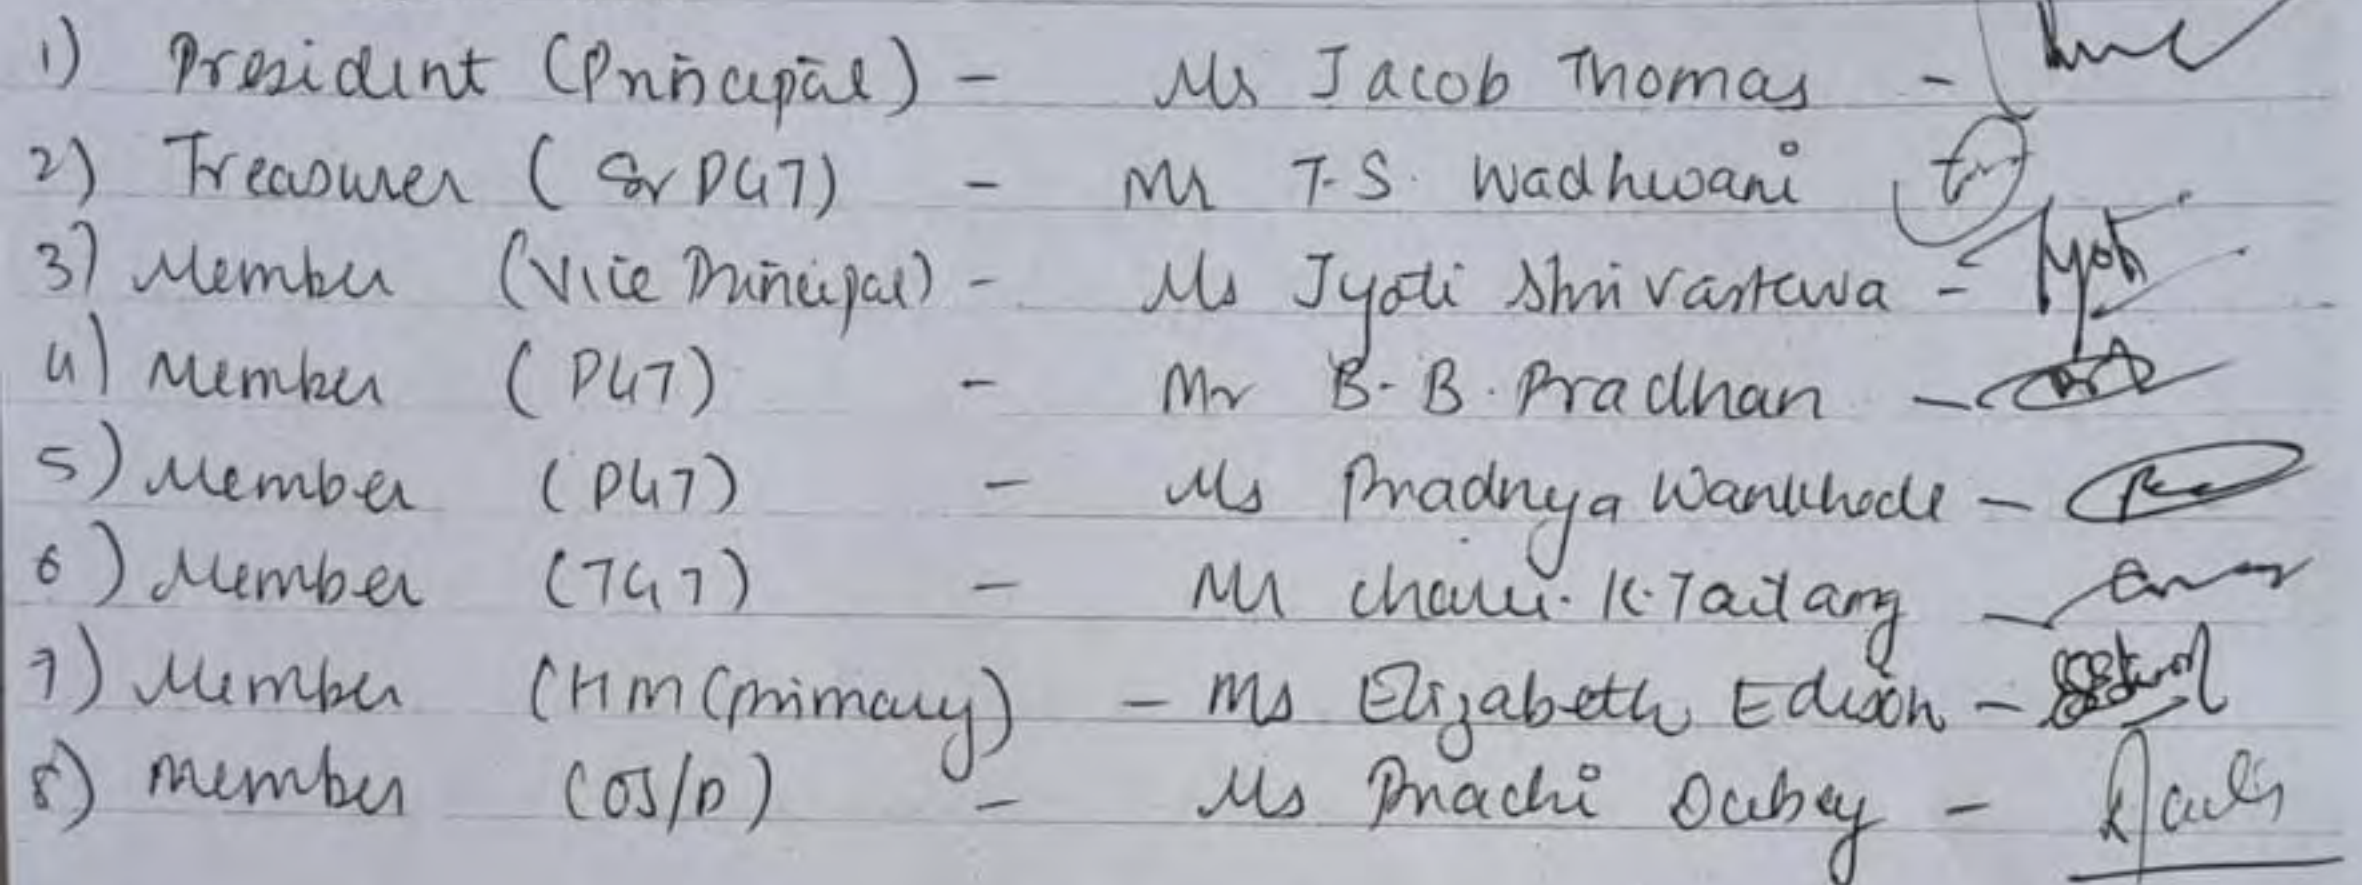 1) President (Principal) - Mr Jacob Thomas -
2) Treasurer (Sr PGT) - Mr T.S. Wadhwani
3) Member (Vice Principal) - Ms Jyoti Shrivastava - Jyoti
4) Member (PGT) - Mr B.B. Pradhan -
5) Member (PGT) - Ms Pradnya Wankhode -
6) Member (TGT) - Mr K. Tailang -
7) Member (HM (primary) - Ms Elizabeth Edison -
8) Member - Ms Prachi Dubey -